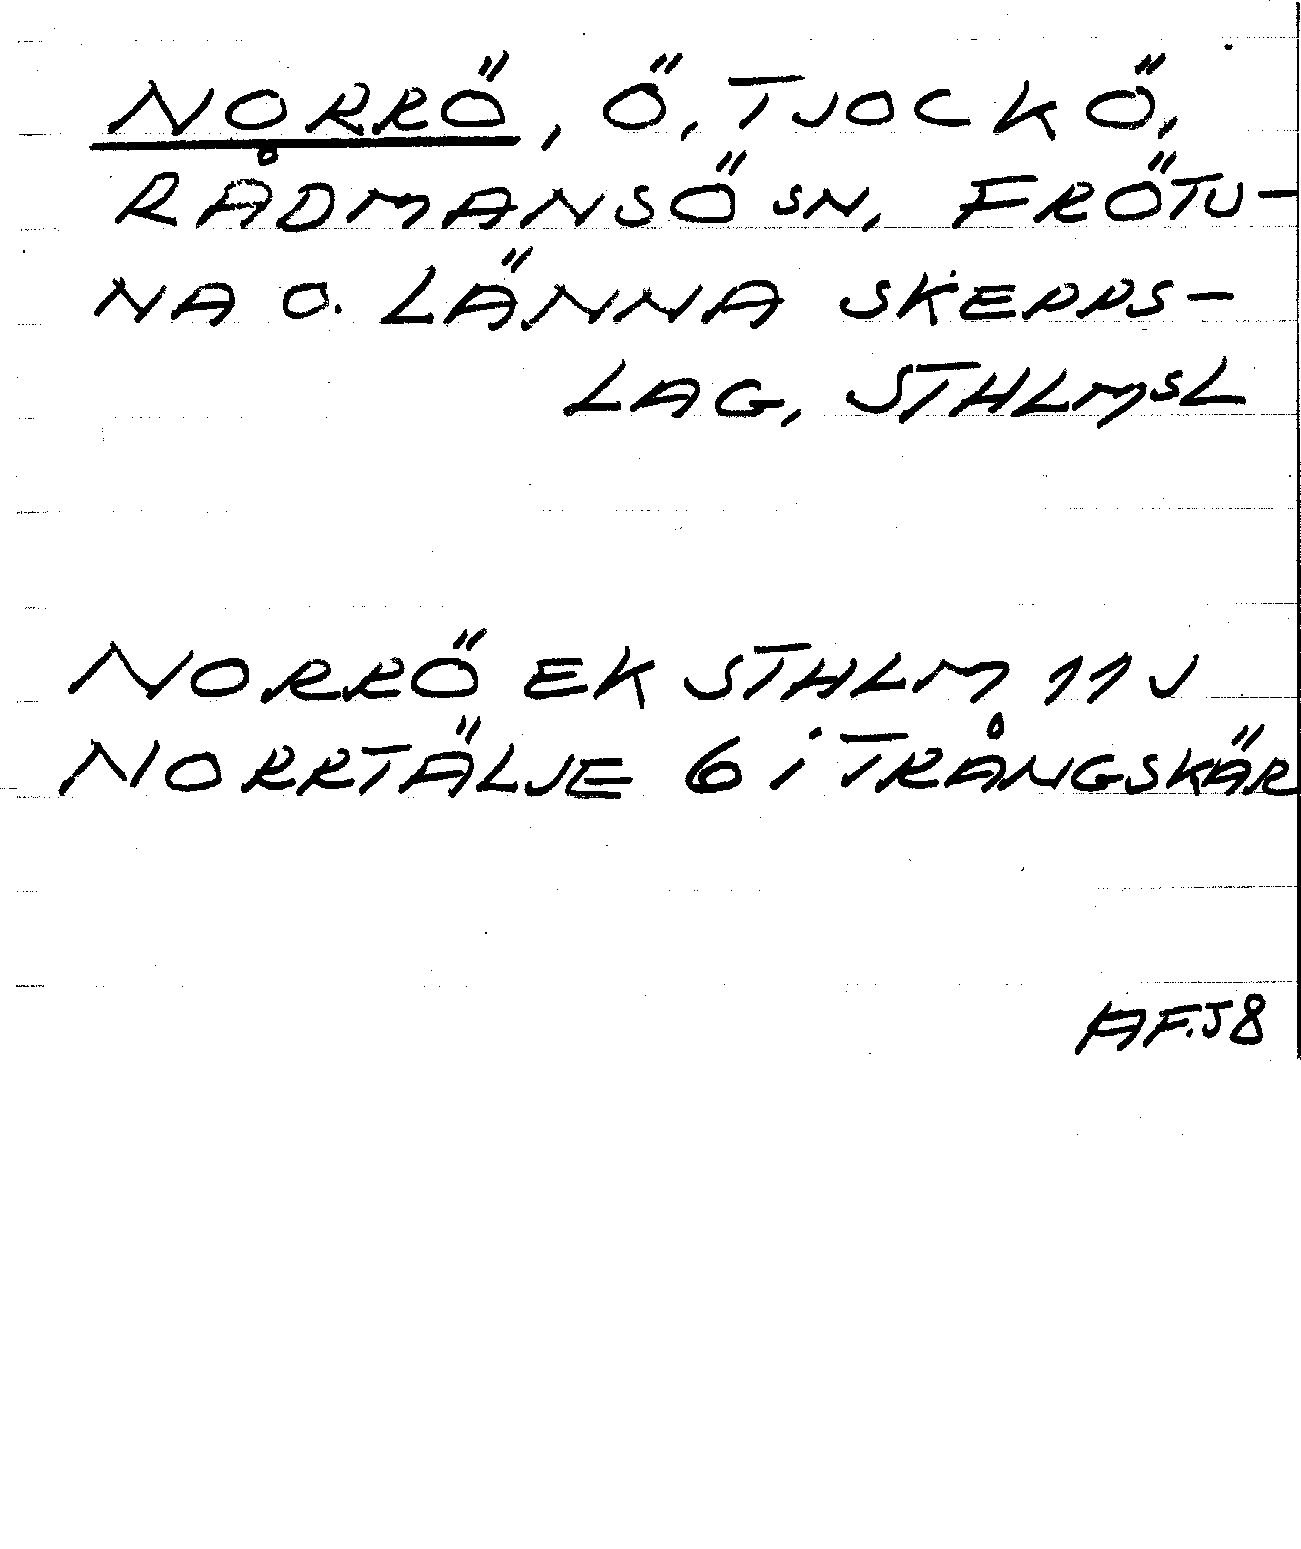 NORRÖ, Ö, TJOCKÖ,
RÅDMANSÖ SN, FRÖTU-
NA O. LÄNNA SKEPPS-
LAG, STHLMSL
NORRÖ EK STHLM 11 J
NORRTÄLJE 6 i TRÅNGSKÄR
AF.J8